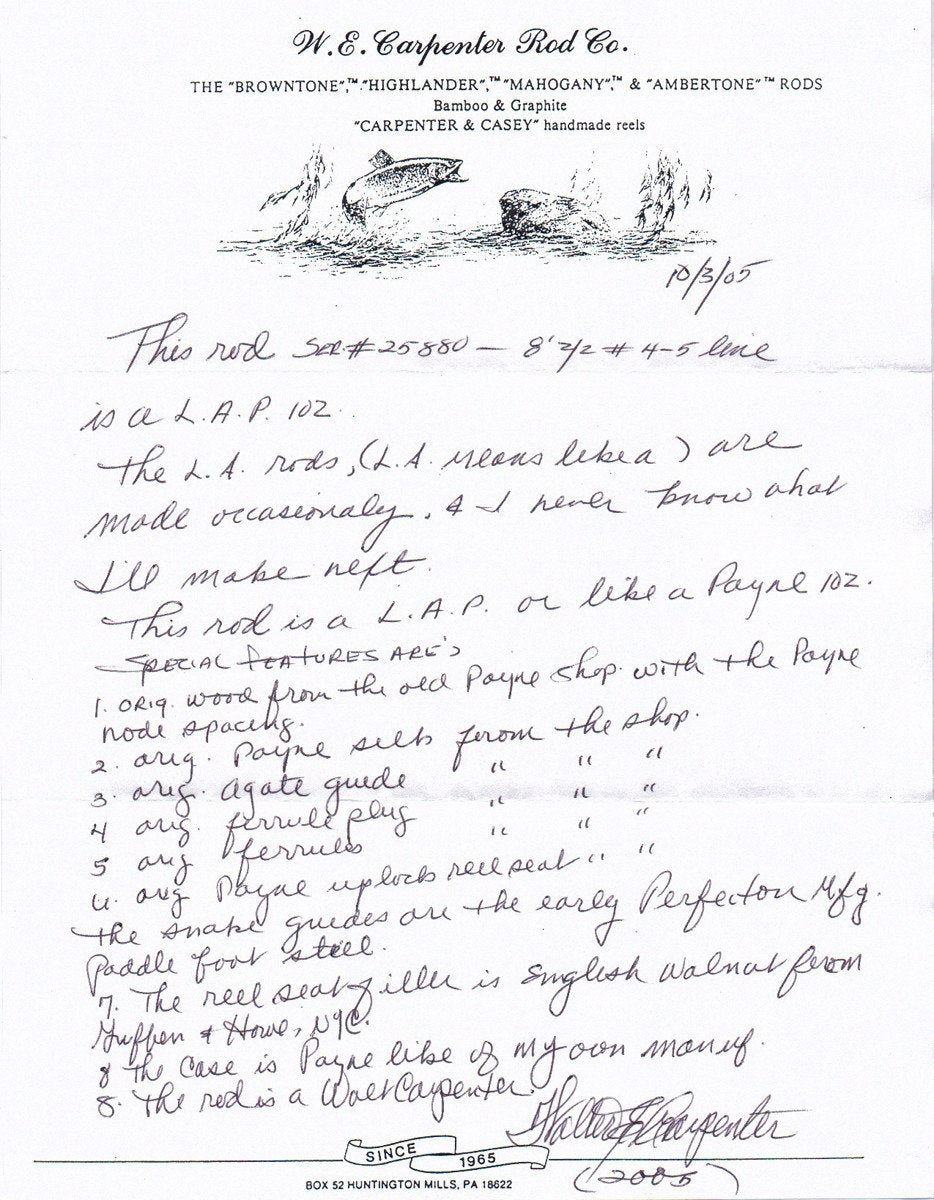 W. E. Carpenter Rod Co.
THE "BROWNTONE",™ "HIGHLANDER",™ "MAHOGANY",™ & "AMBERTONE"™ RODS
Bamboo & Graphite
"CARPENTER & CASEY" handmade reels
10/3/05
This rod SER # 25880 — 8' 2/2 # 4-5 line
is a L.A.P. 102.
The L.A. rods, (L.A. means like a) are
made occasionaly, & I never know what
I'll make next.
This rod is a L.A.P. or like a Payne 102.
SPECIAL FEATURES ARE:
1. ORIG. wood from the old Payne shop with the Payne
node spacing.
2. orig. Payne silks from the shop.
3. orig. agate guide " " "
4 orig. ferrule plug " " "
5 orig ferrules " " "
6. orig Payne uplock reel seat " "
the snake guides are the early Perfection Mfg.
Paddle foot steel.
7. The reel seat filler is English walnut from
Griffen & Howe, NYC.
8 The case is Payne like of my own manuf.
8. The rod is a Walt Carpenter.
Walter E Carpenter
(2005)
SINCE 1965
BOX 52 HUNTINGTON MILLS, PA 18622